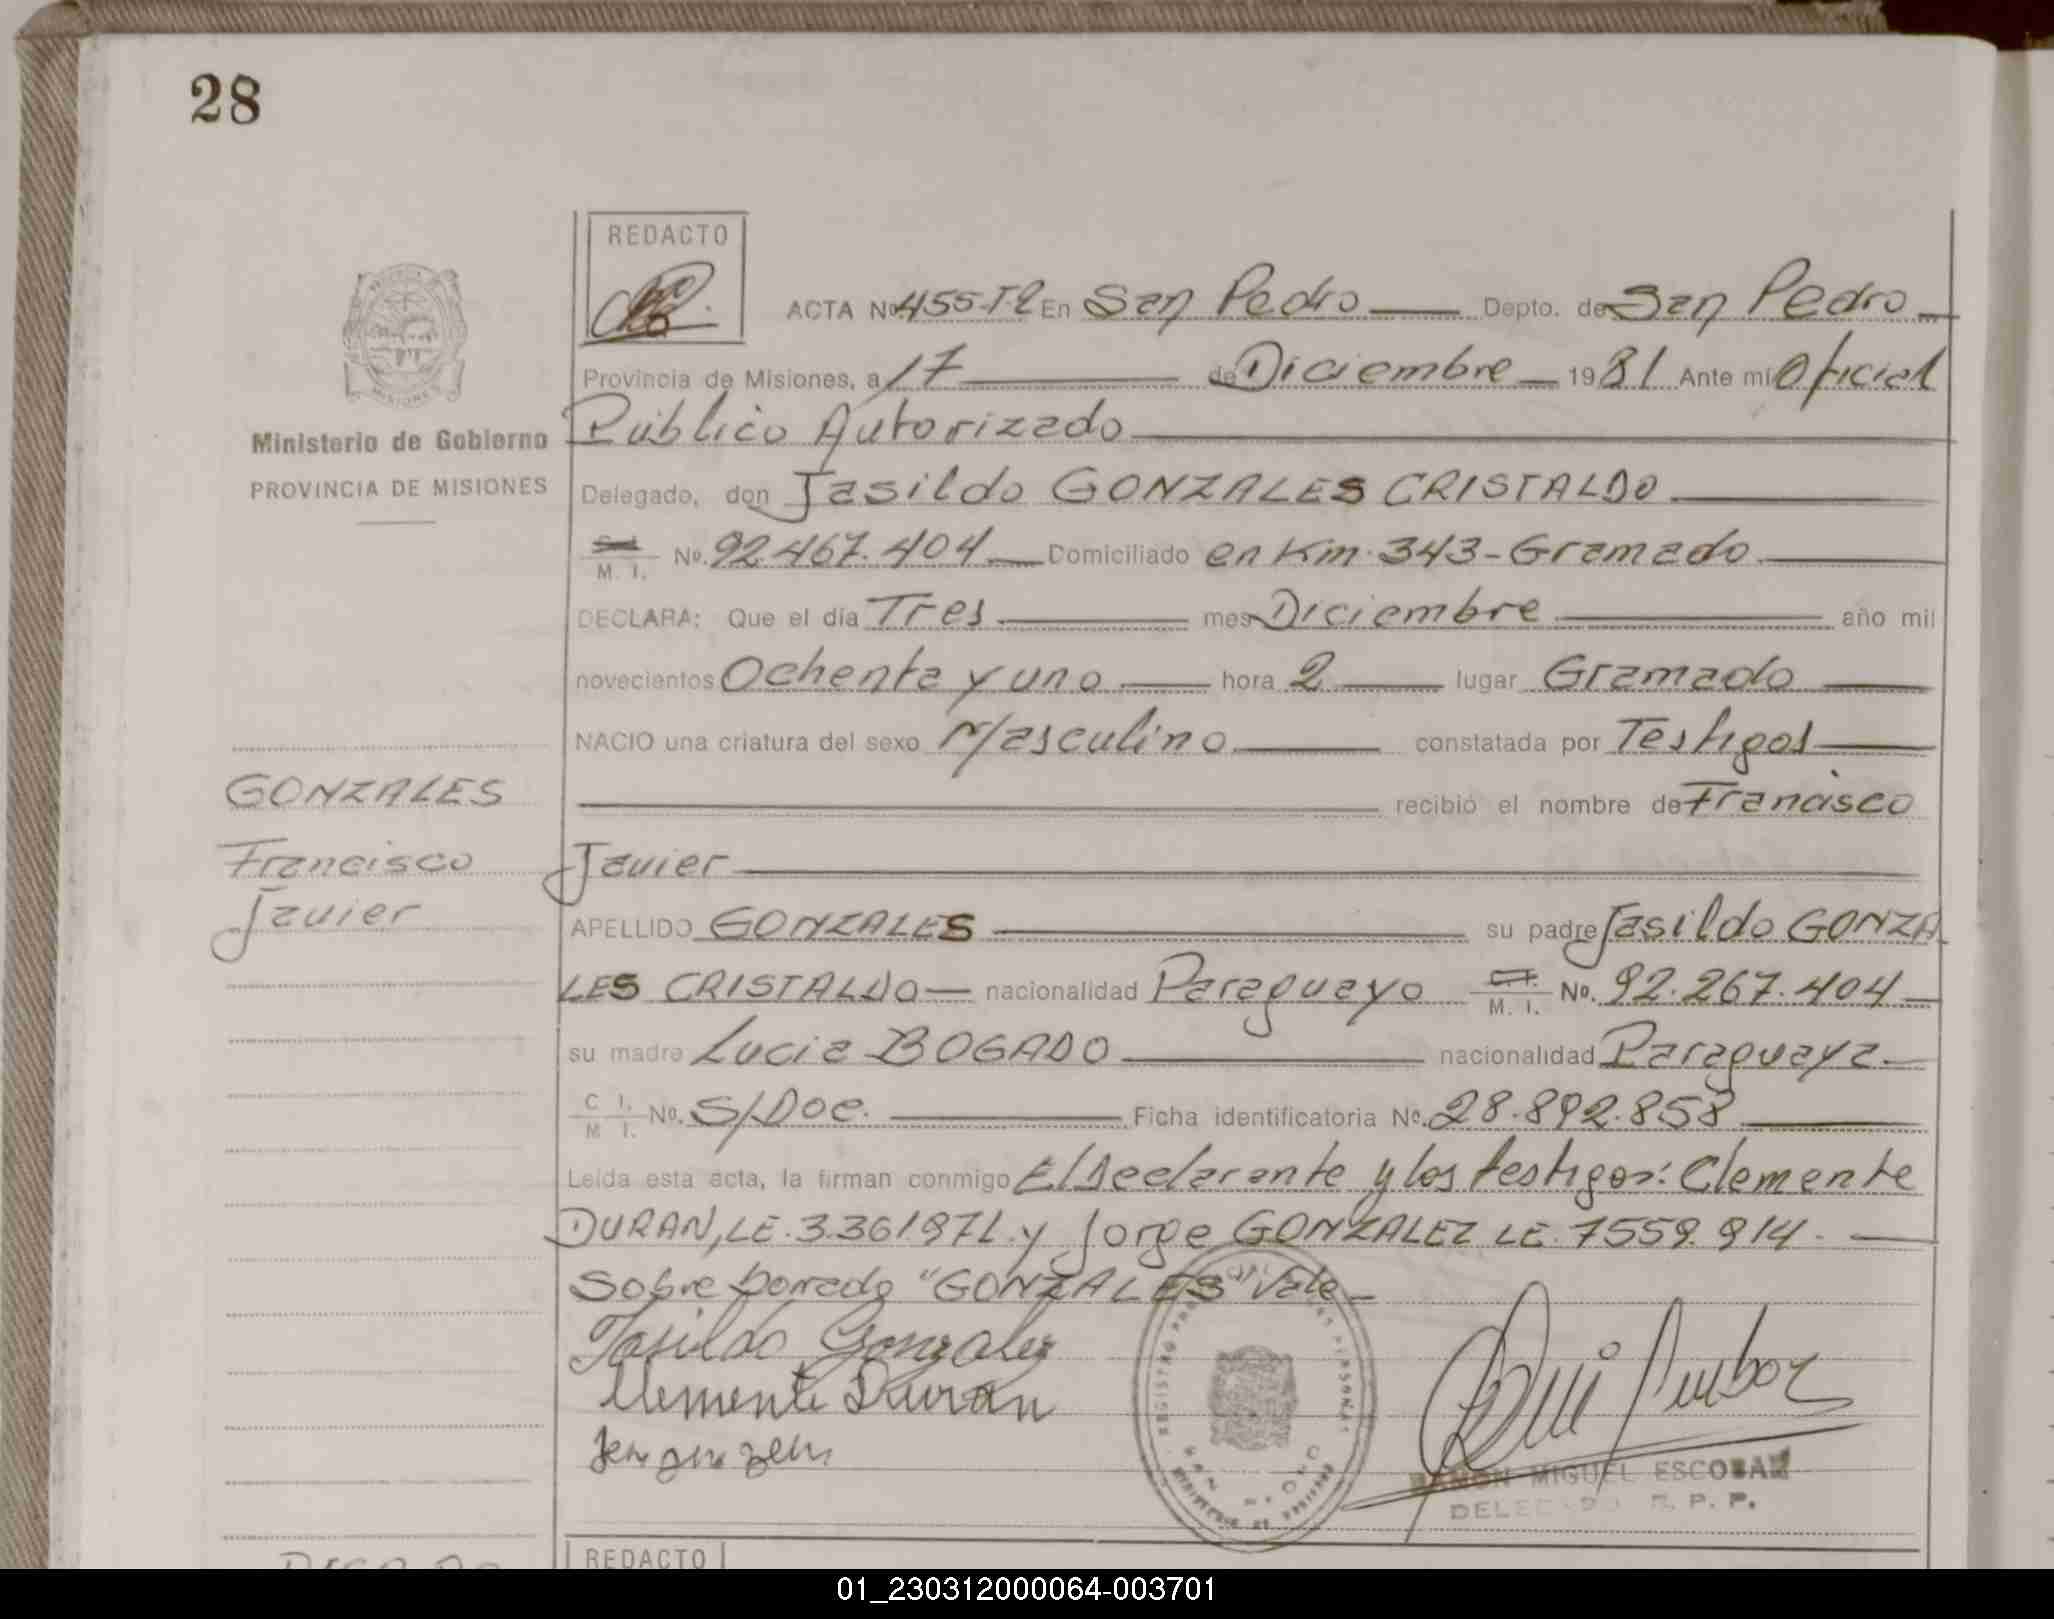 28
REDACTO
ACTA Nº 455-T-2 En San Pedro Depto. de San Pedro
Provincia de Misiones, a 17 de Diciembre 1981 Ante mi Oficial
Público Autorizado
Ministerio de Gobierno
PROVINCIA DE MISIONES
Delegado, don Jasildo GONZALES CRISTALDO
M. I. Nº. 92.467.404 Domiciliado en Km. 343-Gramado
DECLARA: Que el día Tres mes Diciembre año mil
novecientos Ochenta y uno hora 2 lugar Gramado
NACIO una criatura del sexo Masculino constatada por Testigos
GONZALES
recibió el nombre de Francisco
Francisco
Javier
Javier
APELLIDO GONZALES su padre Jasildo GONZA
LES CRISTALDO nacionalidad Paraguayo M. I. Nº. 92.267.404
su madre Lucia BOGADO nacionalidad Paraguaya
C I. M I. Nº. S/Doc. Ficha identificatoria Nº. 28.892.858
Leída esta acta, la firman conmigo El declarante y los testigos: Clemente
DURAN, LE. 3.361971. y Jorge GONZALEZ LE. 7559.914.
Sobre borrado "GONZALES" Vale
Jasildo Gonzalez
Clemente Duran
RAMON MIGUEL ESCOBAR
DELEGADO R. P. P.
REDACTO
01_230312000064-003701